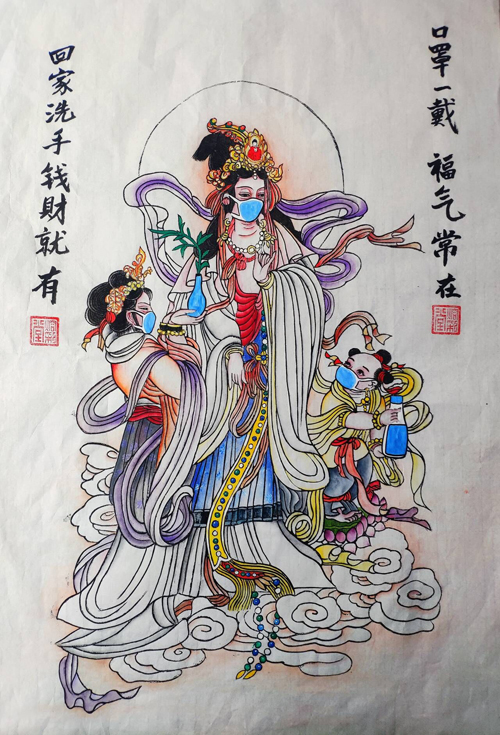 口罩一戴 福气常在
回家洗手钱財就有